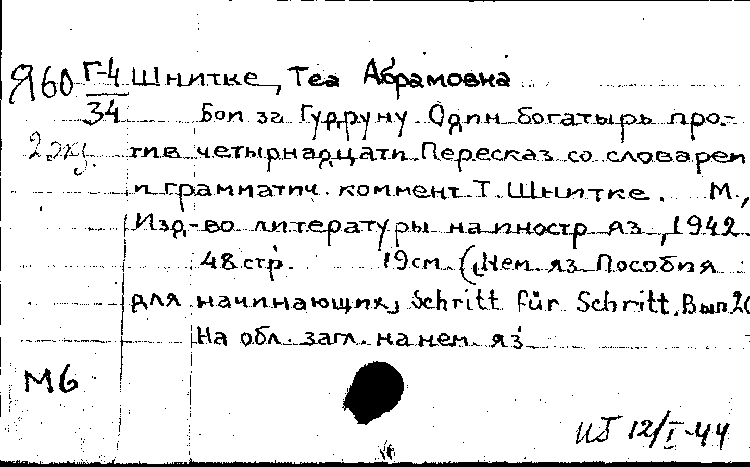 Я60 Г-4 Шнитке, Теа Абрамовна
34 Бои за Гудруну. Один богатырь про-
2 экз. тив четырнадцати. Пересказ со словарем
и грамматич. коммент. Т. Шнитке. М.,
Изд-во литературы на иностр. яз., 1942
48 стр. 19 см. (Нем. яз. Пособия
для начинающих, Schritt für Schritt. Вып. 20
На обл. загл. на нем. яз.
М6
12/I-44